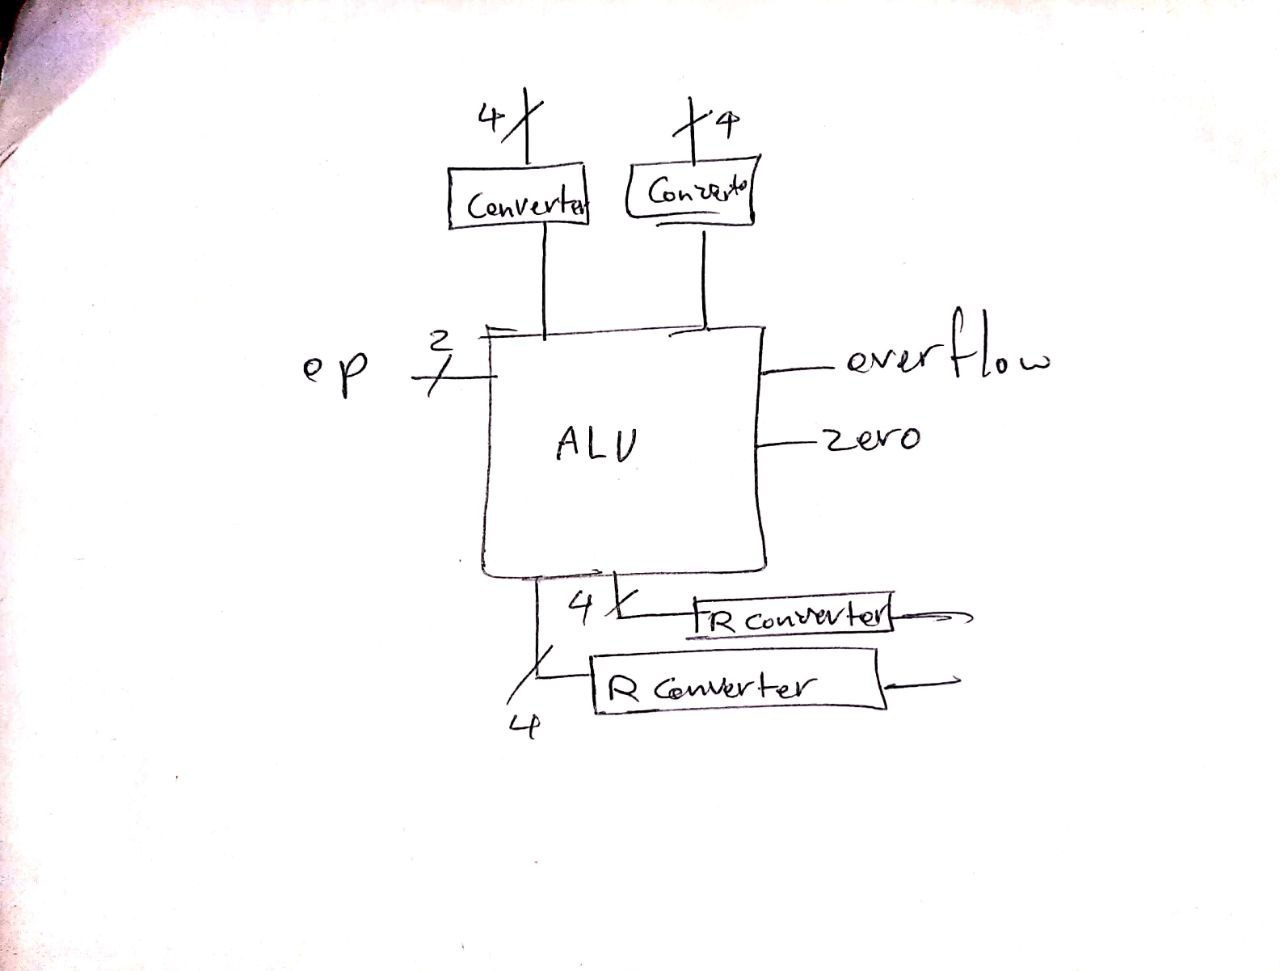 4 4
Converter Converter
2
op overflow
ALU zero
4
R converter
R converter
4